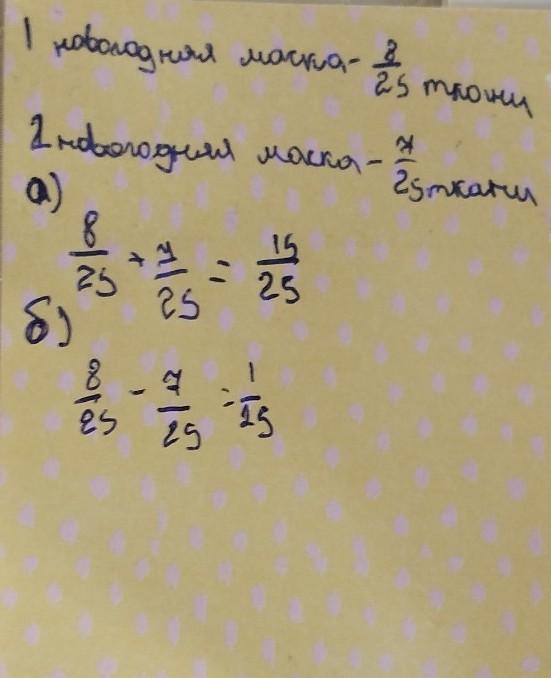 1 новогодняя маска - 8/25 ткани
2 новогодняя маска - 7/25 ткани
а)
8/25 + 7/25 = 15/25
б)
8/25 - 7/25 = 1/25